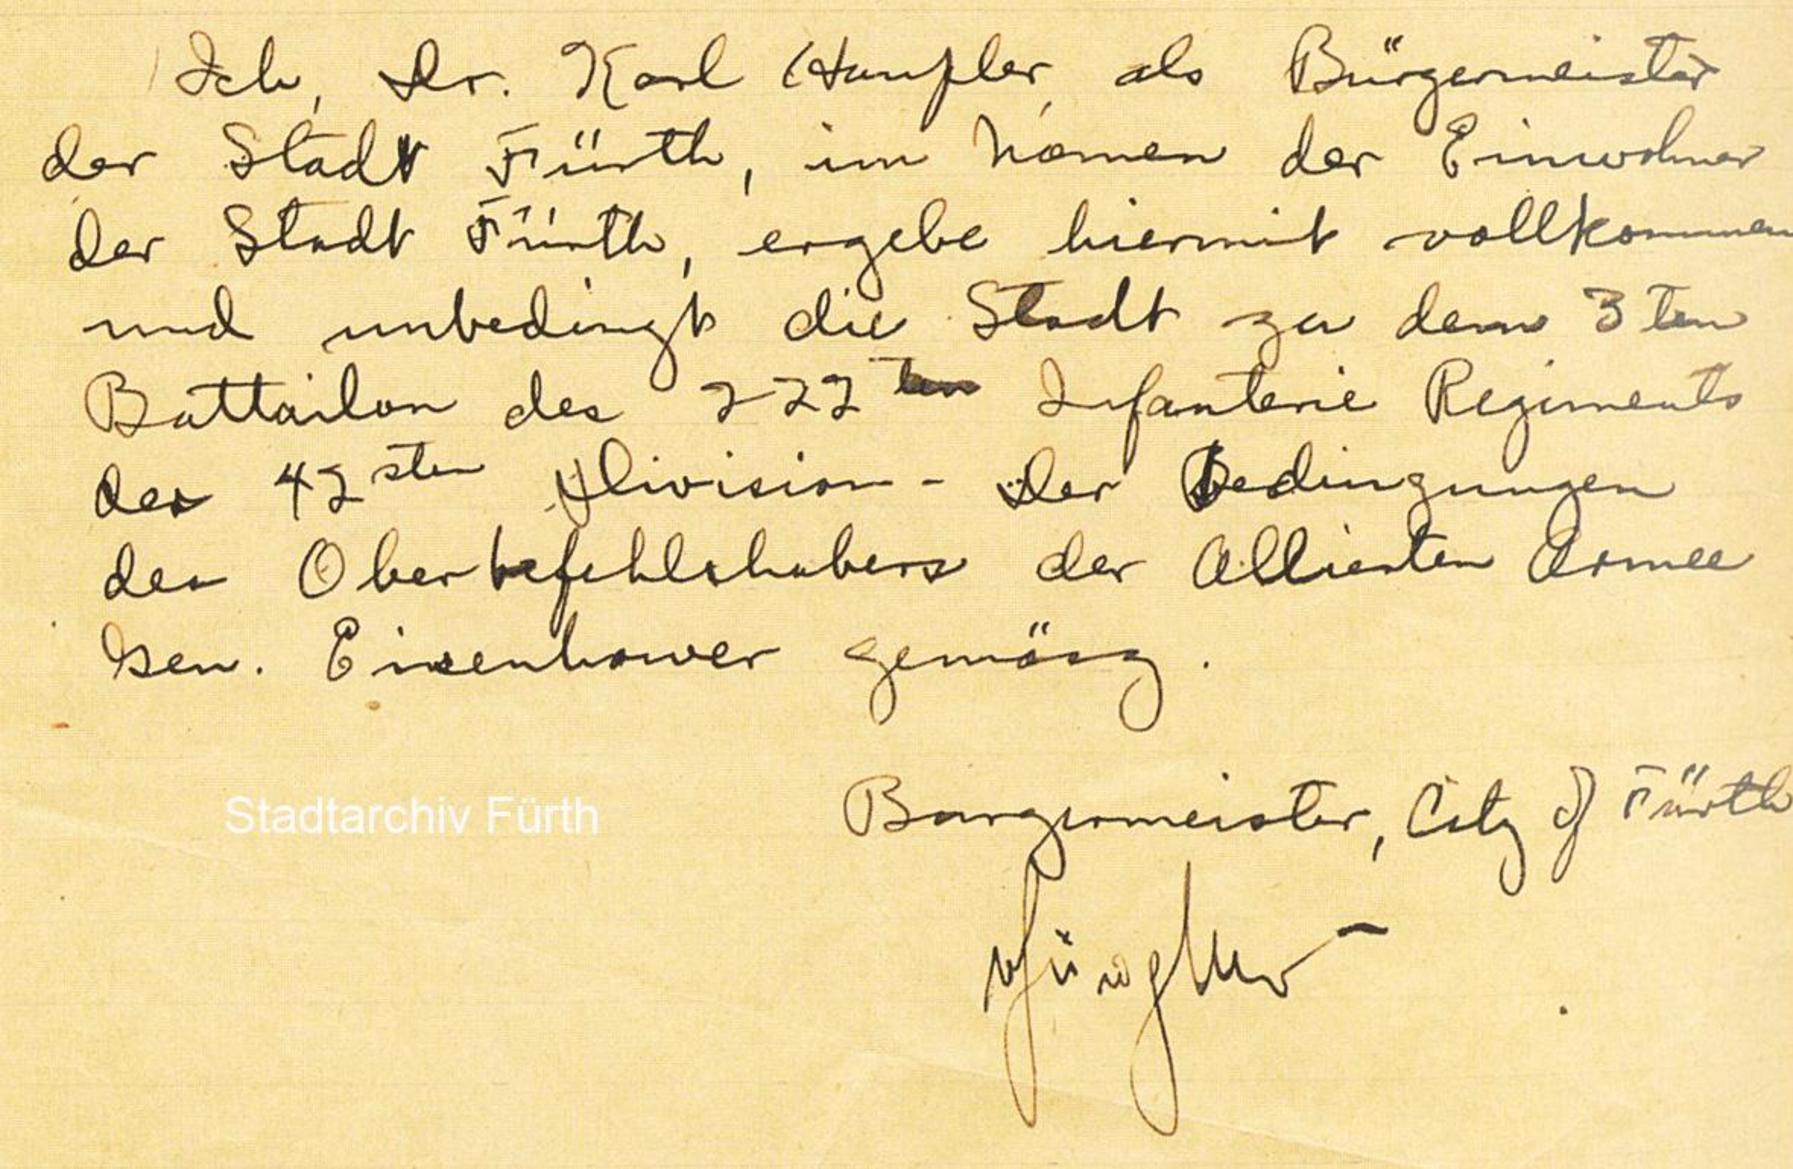 Ich, Dr. Karl Häupler, als Bürgermeister
der Stadt Fürth, im Namen der Einwohner
der Stadt Fürth, ergebe hiermit vollkommen
und unbedingt die Stadt zu dem 3ten
Battailon des 222ten Infanterie Regiments
der 42sten Division - der Bedingungen
des Oberbefehlshabers der Allierten Armee
Gen. Eisenhower gemäsz.
Stadtarchiv Fürth
Burgermeister, City of Fürth